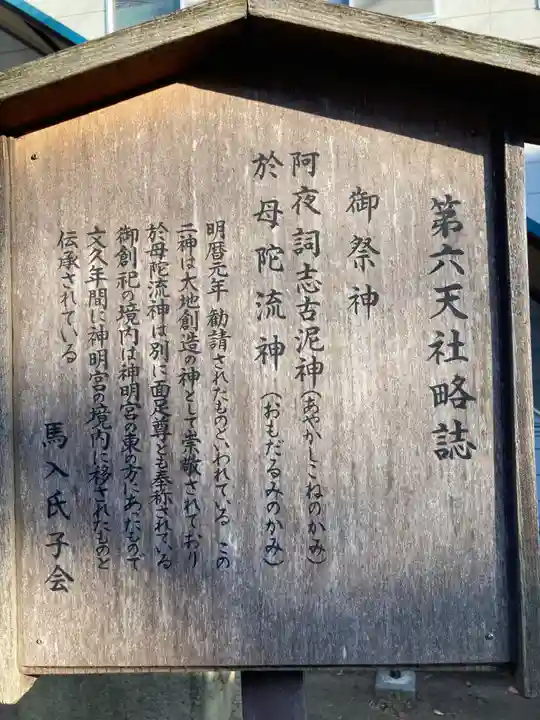 第六天社略誌
御祭神
阿夜詞志古泥神(あやかしこねのかみ)
於母陀流神(おもだるみのかみ)
明暦元年 勧請されたものと、いわれている この
二神は大地創造の神として崇敬されており
於母陀流神は別に面足尊とも奉称されている
御創祀の境内は神明宮の東の方にあたもので
文久年間に神明宮の境内に移されたものと
伝承されている
馬入氏子会